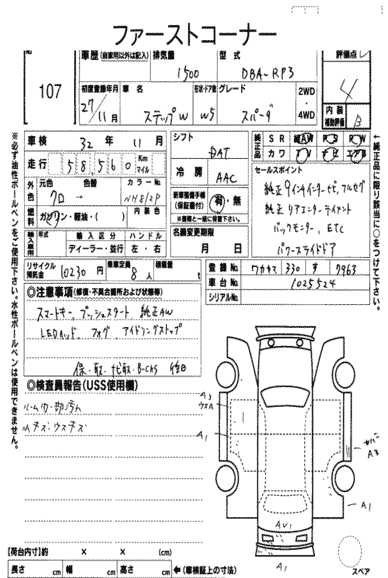 ファーストコーナー
107
車歴 (自家用以外は記入) 排気量 型式 評価点
1500 DBA-RP3 4
初度登録年月 車名 形状・ドア数 グレード 2WD・4WD 内装補助評価
27/11月 ステップW W5 スパーダ B
車検 32年 11月 シフト 純正品 SR AW PS PW
走行 58,560 Km マイル DAT カワ TV ナビ エアB
外色 元色 色替 カラーNo. 冷房 セールスポイント
クロ → NH812P AAC 純正9インチインターナビ,フルセグ
燃料 ガソリン・軽油・( ) 内装色 新車整備手帳(保証書付) 有・無 純正リアエンターテイメント
※車種と一緒に搬入下さい バックモニター,ETC
輸入車用 輸入区分 ハンドル 名義変更期限 パワースライドドア
ディーラー・並行 左・右 月 日
リサイクル預託金 10230円 乗車定員 8人 積載量 t 登録No. ワカヤマ 330 す 7963
車台No. 1025524
シリアルNo.
◎注意事項 (修復・不具合箇所および状態等)
スマートキー,プッシュスタート,純正AW
LEDヘッド,フォグ,アイドリングストップ
保・取・ 後日
◎検査員報告 (USS使用欄)
A3
A1
A1
A1
スペア
【荷台内寸】約 × × (cm)
長さ cm 幅 cm 高さ cm ←(車検証上の寸法)
※必ず油性ボールペンをご使用下さい。水性ボールペンは使用できません。
←純正品に限り該当に○をつけて下さい。